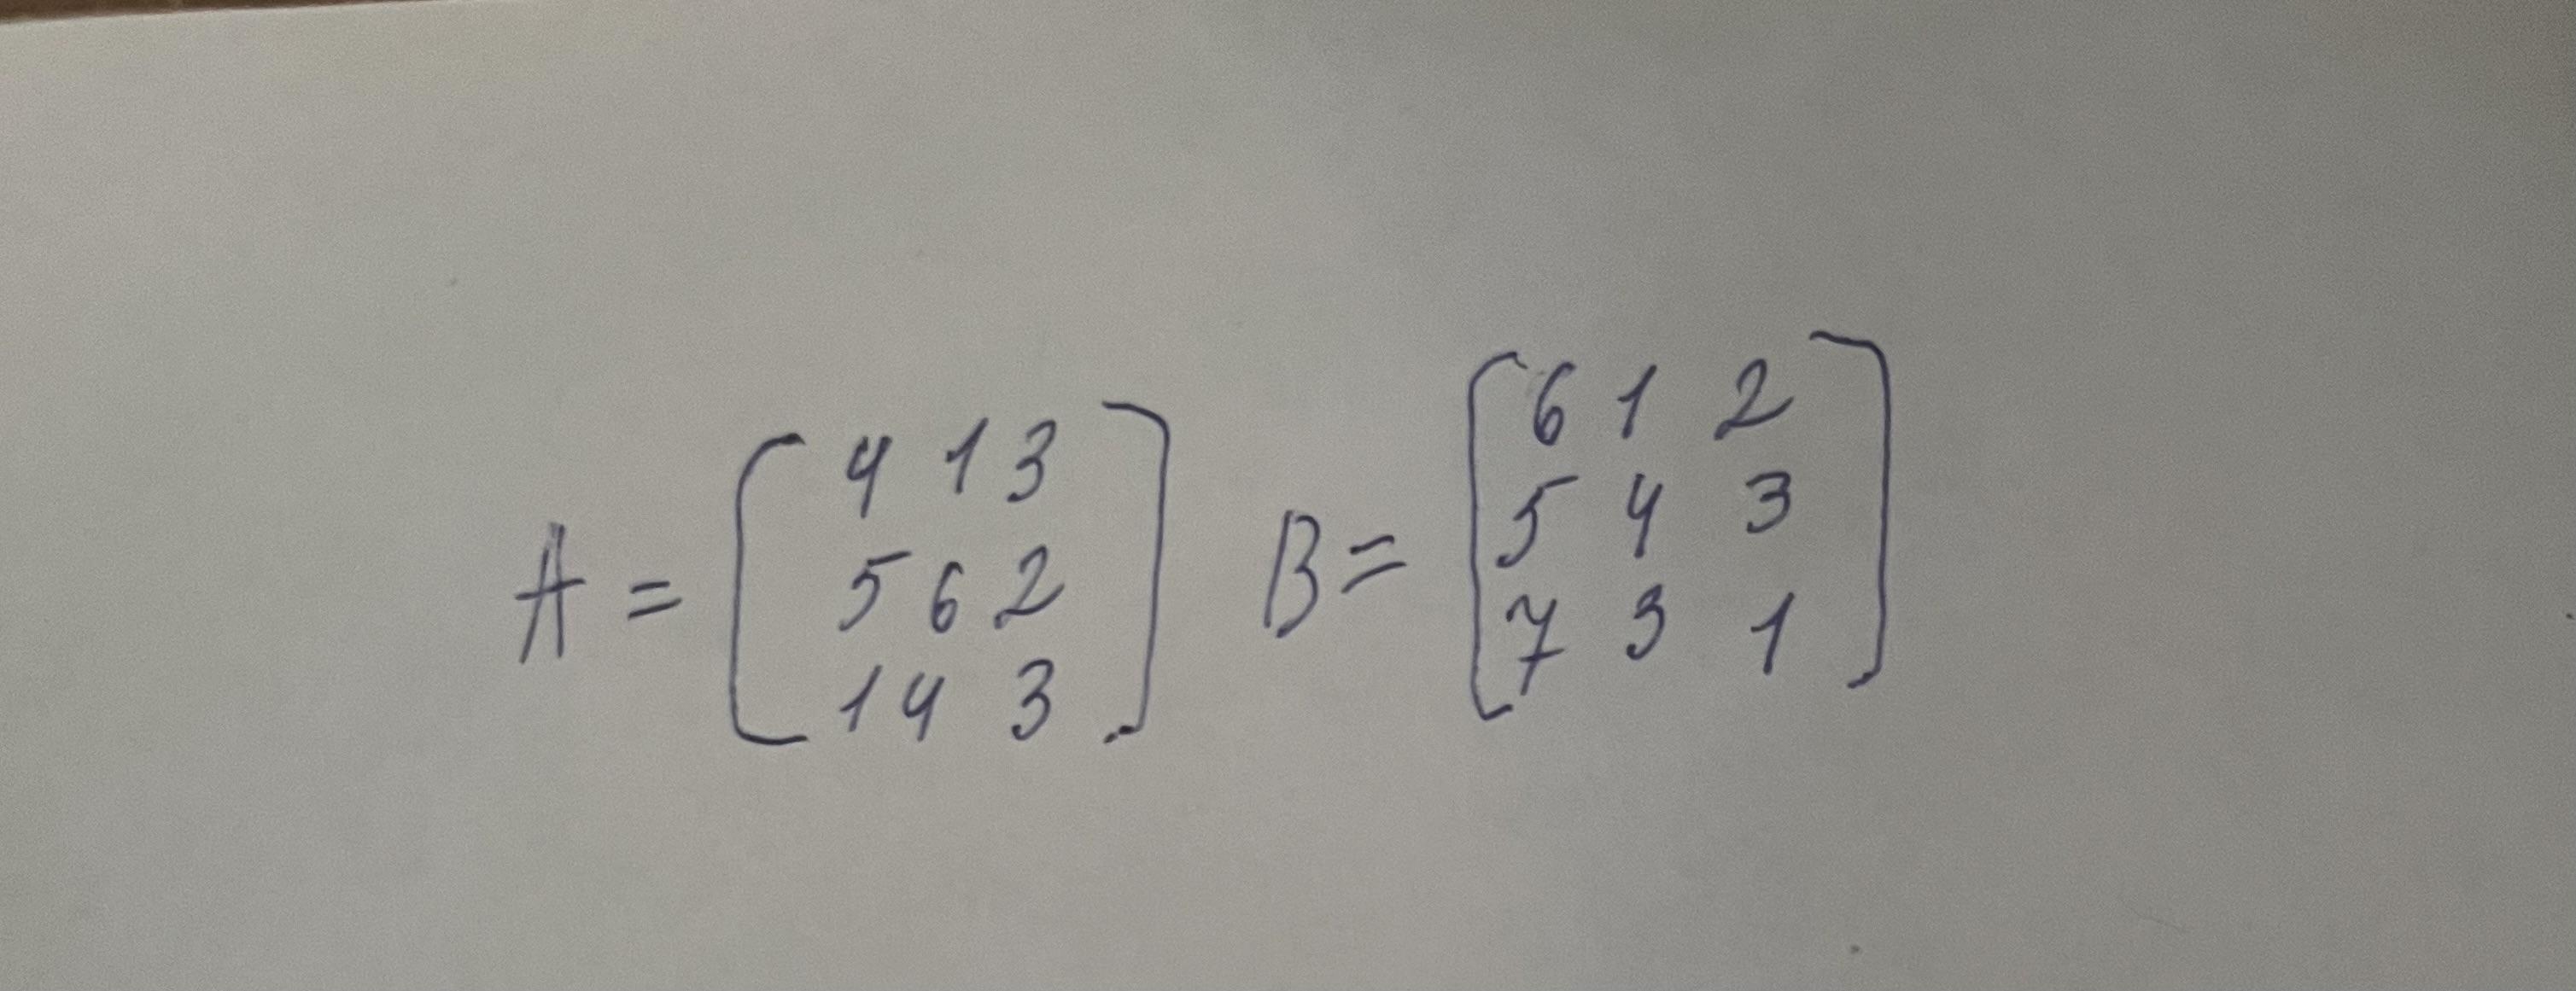 A = [ 4 1 3
5 6 2
1 4 3 ]
B = [ 6 1 2
5 4 3
7 3 1 ]